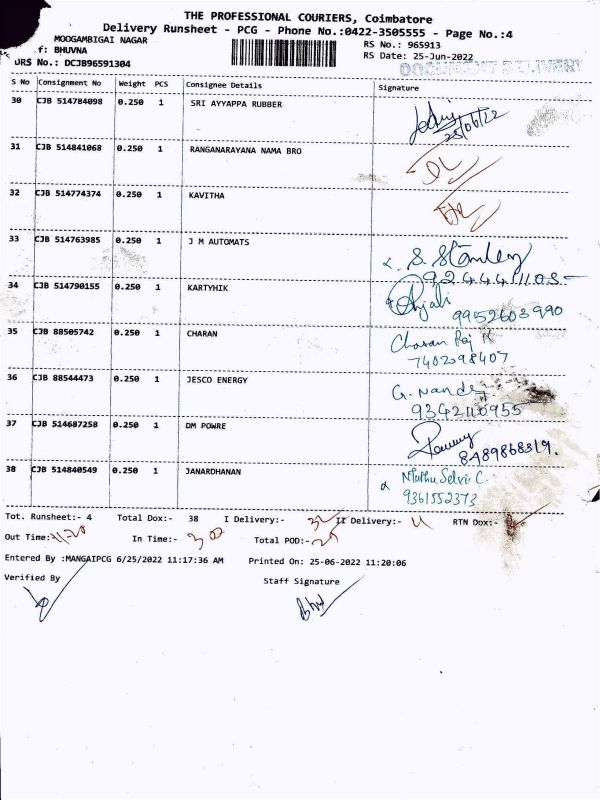 THE PROFESSIONAL COURIERS, Coimbatore
Delivery Runsheet - PCG - Phone No.:0422-3505555 - Page No.:4
MOOGAMBIGAI NAGAR
f: BHUVNA
DRS No.: DCJB96591304
RS No.: 965913
RS Date: 25-Jun-2022
DOCUMENT DELIVERY
S No Consignment No Weight PCS Consignee Details Signature
30 CJB 514784098 0.250 1 SRI AYYAPPA RUBBER
25/06/22
31 CJB 514841068 0.250 1 RANGANARAYANA NAMA BRO
32 CJB 514774374 0.250 1 KAVITHA
33 CJB 514763985 0.250 1 J M AUTOMATS S. Stanley
34 CJB 514790155 0.250 1 KARTYHIK Anjali
9952603990
35 CJB 88505742 0.250 1 CHARAN Charan Raj K
7402298407
36 CJB 88544473 0.250 1 JESCO ENERGY G. Nandy
9342110955
37 CJB 514687258 0.250 1 DM POWRE
8489868319.
38 CJB 514840549 0.250 1 JANARDHANAN Muthu Selvi C
9361552373
Tot. Runsheet:- 4 Total Dox:- 38 I Delivery:- II Delivery:- RTN Dox:-
Out Time:- In Time:- Total POD:-
Entered By :MANGAIPCG 6/25/2022 11:17:36 AM Printed On: 25-06-2022 11:20:06
Verified By Staff Signature